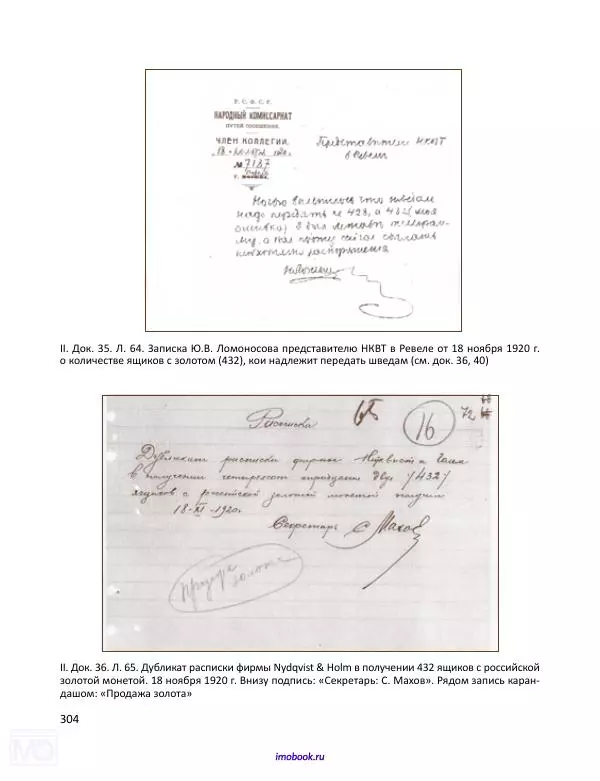 Р. С. Ф. С. Р.
НАРОДНЫЙ КОМИССАРИАТ
ПУТЕЙ СООБЩЕНИЯ.
ЧЛЕН КОЛЛЕГИИ.
„18“ ноября 1920 г.
№ 7187
г. Москва.
Представителю НКВТ
в Ревеле
Ночью выяснилось что шведам
надо передать не 428, а 432 (моя
ошибка) Я дал
а Вас прошу сейчас сделать
распоряжения
II. Док. 35. Л. 64. Записка Ю.В. Ломоносова представителю НКВТ в Ревеле от 18 ноября 1920 г.
о количестве ящиков с золотом (432), кои надлежит передать шведам (см. док. 36, 40)
Расписка
16
72
Дубликат расписки фирмы Нидквист и Гольм
в получении четырехсот тридцати двух /432/
ящиков с российской золотой монетой получил
18-XI-1920г.
Секретарь С Махов
Продажа
золота
II. Док. 36. Л. 65. Дубликат расписки фирмы Nydqvist & Holm в получении 432 ящиков с российской
золотой монетой. 18 ноября 1920 г. Внизу подпись: «Секретарь: С. Махов». Рядом запись каран-
дашом: «Продажа золота»
304
imobook.ru